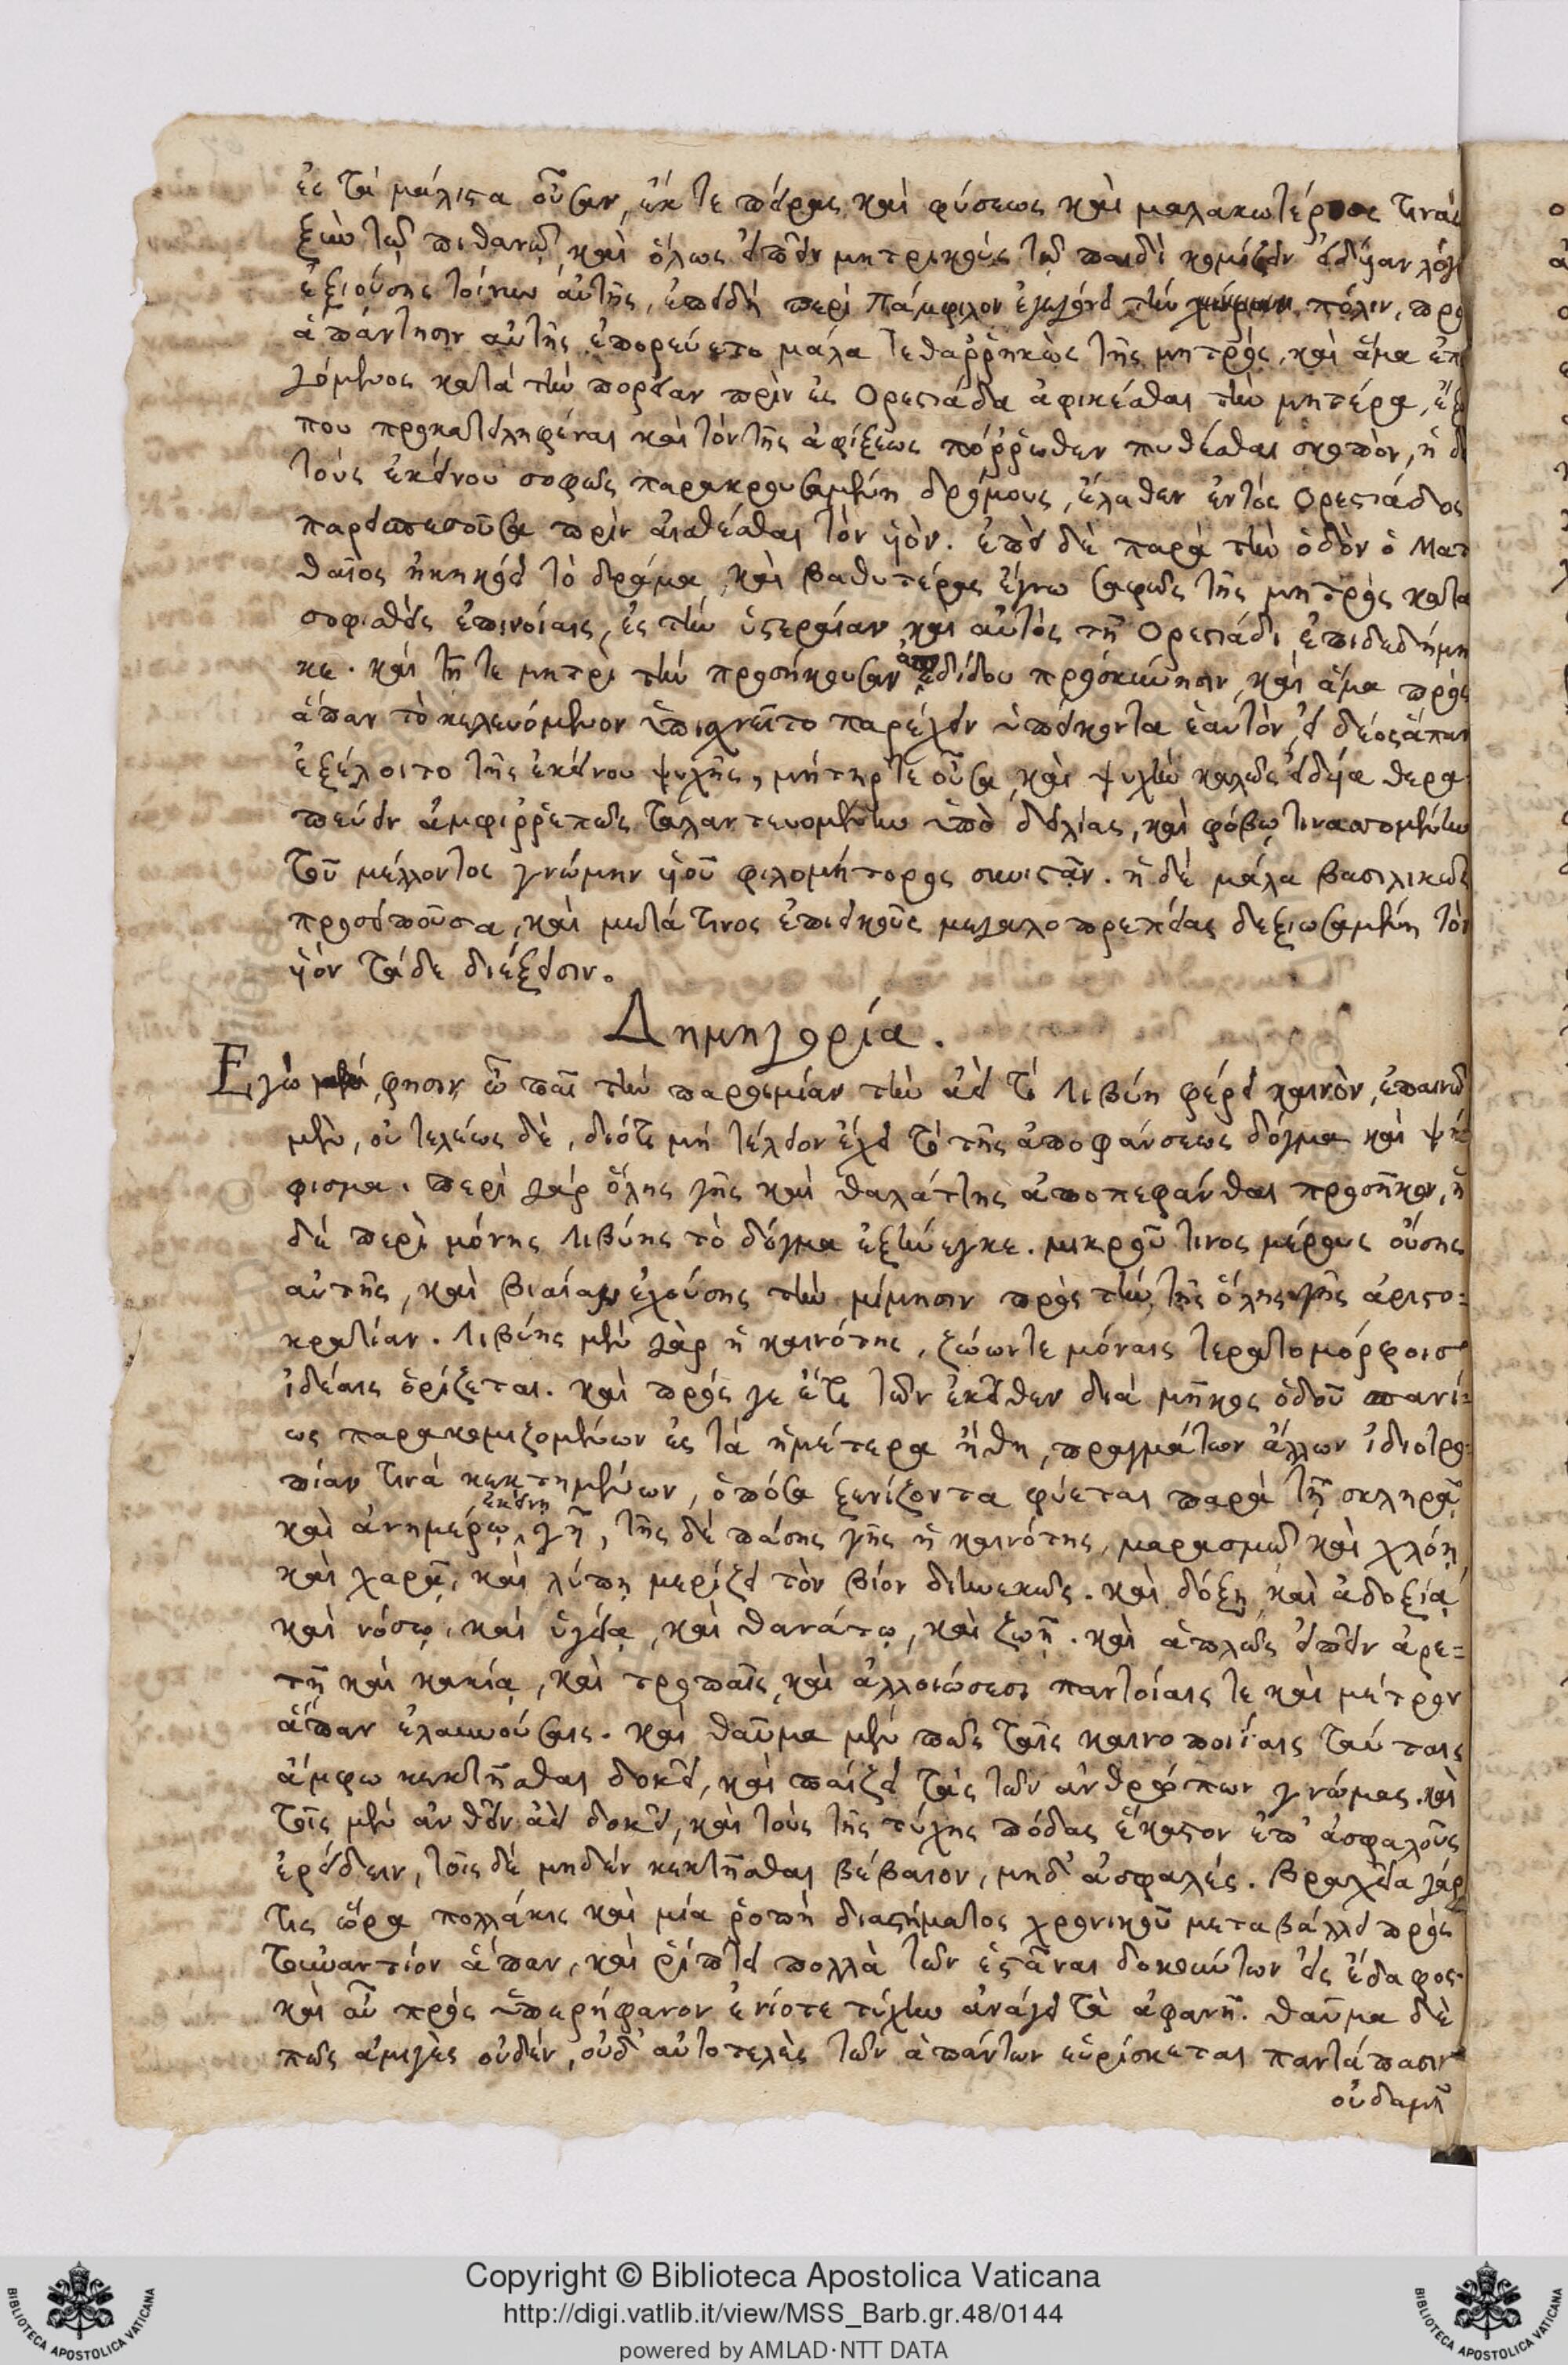 ἐς τὰ μάλιστα οὖσαν, ἔκ τε πείρας καὶ φύσεως καὶ μαλακωτέρας τινὰς
ξὺν τῷ πιθανῷ, καὶ ὅλως εἰπεῖν μητρικοὺς τῷ παιδὶ κομίζειν
ἐξιούσης τοίνυν αὐτῆς, ἐπειδὴ περὶ Πάμφιλον ἐγεγόνει τὴν πόλιν, πρὸ
ἀπάντησιν αὐτῆς ἐπορεύετο μάλα τεθαρρηκὼς τῆς μητρὸς, καὶ ἅμα ἐπει
γόμενος κατὰ τὴν πορείαν πρὶν ἐς Ὀρεστιάδα ἀφικέσθαι τὴν μητέρα,
που προκατειληφέναι καὶ τὸν τῆς ἀφίξεως πόρρωθεν πυθέσθαι σκοπὸν, ἡ δὲ
τοὺς ἐκείνου σοφῶς παρακρουσαμένη δρόμους, ἔλαθεν ἐντὸς Ὀρεστιάδος
παρεισπεσοῦσα πρὶν αἰσθέσθαι τὸν υἱόν. ἐπεὶ δὲ παρὰ τὴν ὁδὸν ὁ Ματ
θαῖος ἠκηκόει τὸ δρᾶμα, καὶ βαθυτέραις ἔγνω σαφῶς τῆς μητρὸς κατα
σοφισθεὶς ἐπινοίαις, ἐς τὴν ὑστεραίαν καὶ αὐτὸς τῇ Ὀρεστιάδι ἐπιδεδήμη
κε. καὶ τῇ τε μητρὶ τὴν προσήκουσαν ἀπεδίδου προσκύνησιν, καὶ ἅμα πρὸς
ἅπαν τὸ κελευόμενον ὑπισχνεῖτο παρέχειν ὑπείκοντα ἑαυτὸν, εἰ δέος ἅπαν
ἐξέλοιτο τῆς ἐκείνου ψυχῆς, μήτηρ τε οὖσα, καὶ ψυχὴν καλῶς εἰδυῖα θερα
πεύειν ἀμφιρρεπῶς ταλαντευομένην ὑπὸ δειλίας, καὶ φόβῳ τινασσομένην
τοῦ μέλλοντος γνώμην υἱοῦ φιλομήτορος συνιστᾶν. ἡ δὲ μάλα βασιλικῶς
προσειποῦσα, καὶ μετά τινος ἐπιεικοῦς μεγαλοπρεπείας δεξιωσαμένη τὸν
υἱὸν τάδε διέξεισιν.
Δημηγορία.
Ἐγὼ φησιν, ὦ παῖ τὴν παροιμίαν τὴν ἀεί τι Λιβύη φέρει καινὸν, ἐπαινῶ
μὲν, οὐ τελέως δὲ, διότι μὴ τέλειον ἔχει τὸ τῆς ἀποφάνσεως δόγμα καὶ ψή
φισμα. περὶ γὰρ ὅλης γῆς καὶ θαλάττης ἀποπεφάνθαι προσῆκον, ἡ
δὲ περὶ μόνης Λιβύης τὸ δόγμα ἐξήνεγκε. μικροῦ τινος μέρους οὔσης
αὐτῆς, καὶ βιαίαν ἐχούσης τὴν μίμησιν πρὸς τὴν τῆς ὅλης γῆς ἀριστο=
κρατίαν. Λιβύης μὲν γὰρ ἡ καινότης, ζώων τε μόναις τερατομόρφοις
ἰδέαις ὁρίζεται. καὶ πρός γε ἔτι τῶν ἐκεῖθεν διὰ μῆκος ὁδοῦ σπανί=
ως παρακομιζομένων ἐς τὰ ἡμέτερα ἤθη, πραγμάτων ἄλλων ἰδιοτρο=
πίαν τινὰ κεκτημένων, ὁπόσα ξενίζοντα φύεται παρὰ τῇ σκληρᾷ
καὶ ἀνημέρῳ ἐκείνῃ γῇ, τῆς δὲ πάσης γῆς ἡ καινότης, μαρασμῷ καὶ χλόῃ
καὶ χαρᾷ, καὶ λύπῃ μερίζει τὸν βίον διηνεκῶς. καὶ δόξῃ καὶ ἀδοξίᾳ
καὶ νόσῳ, καὶ ὑγείᾳ, καὶ θανάτῳ, καὶ ζωῇ. καὶ ἁπλῶς εἰπεῖν ἀρε=
τῇ καὶ κακίᾳ, καὶ τροπαῖς, καὶ ἀλλοιώσεσι παντοίαις τε καὶ μέτρον
ἅπαν ἐλαυνούσαις. καὶ θαῦμα μὲν πῶς ταῖς καινοποιίαις ταύταις
ἄμφω κεκτῆσθαι δοκεῖ, καὶ παίζει τὰς τῶν ἀνθρώπων γνώμας. καὶ
τοῖς μὲν ἀνθεῖν ἀεὶ δοκεῖ, καὶ τοὺς τῆς τύχης πόδας ἕκαστον ἐπ' ἀσφαλοῦς
ἐρείδειν, τοῖς δὲ μηδὲν κεκτῆσθαι βέβαιον, μηδ' ἀσφαλές. βραχεῖα γάρ
τις ὥρα πολλάκις καὶ μία ῥοπὴ διαστήματος χρονικοῦ μεταβάλλει πρὸς
τοὐναντίον ἅπαν, καὶ ῥίπτει πολλὰ τῶν ἑστάναι δοκούντων εἰς ἔδαφος.
καὶ αὖ πρὸς ὑπερήφανον ἐνίοτε τύχην ἀνάγει τὰ ἀφανῆ. θαῦμα δὲ
πῶς ἀμιγὲς οὐδὲν, οὐδ' αὐτοτελὲς τῶν ἁπάντων εὑρίσκεται παντάπασιν
οὐδαμῇ
Copyright © Biblioteca Apostolica Vaticana
http://digi.vatlib.it/view/MSS_Barb.gr.48/0144
powered by AMLAD·NTT DATA
BIBLIOTECA APOSTOLICA VATICANA
BIBLIOTECA APOSTOLICA VATICANA